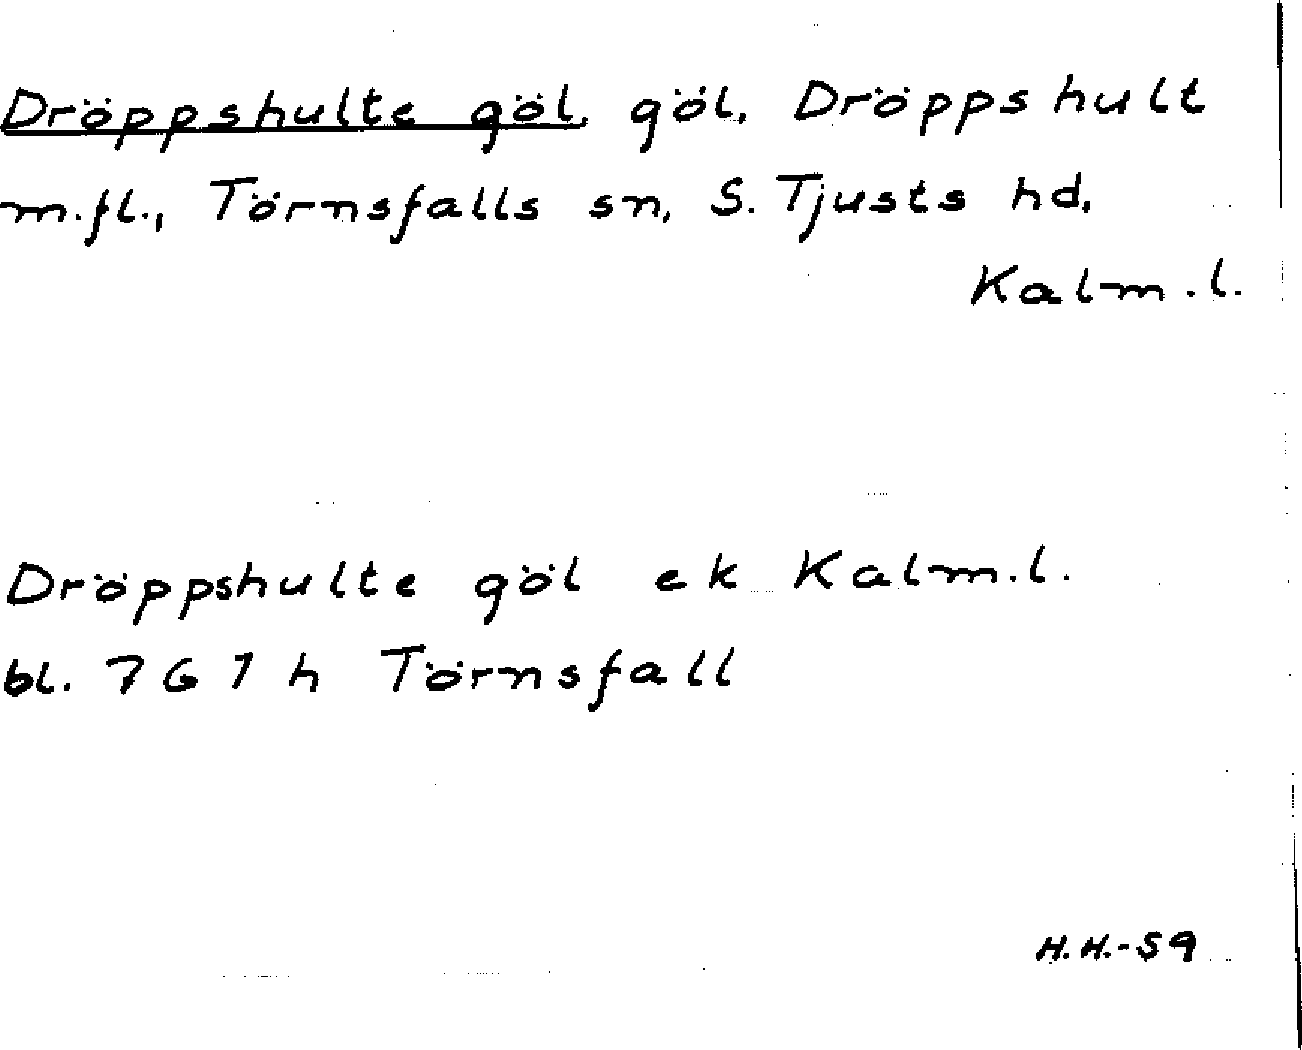 Dröppshulte göl, göl, Dröppshult
m.fl., Törnsfalls sn, S. Tjusts hd,
Kalm.l.
Dröppshulte göl ek Kalm.l.
bl. 7G7h Törnsfall
H.H.-59